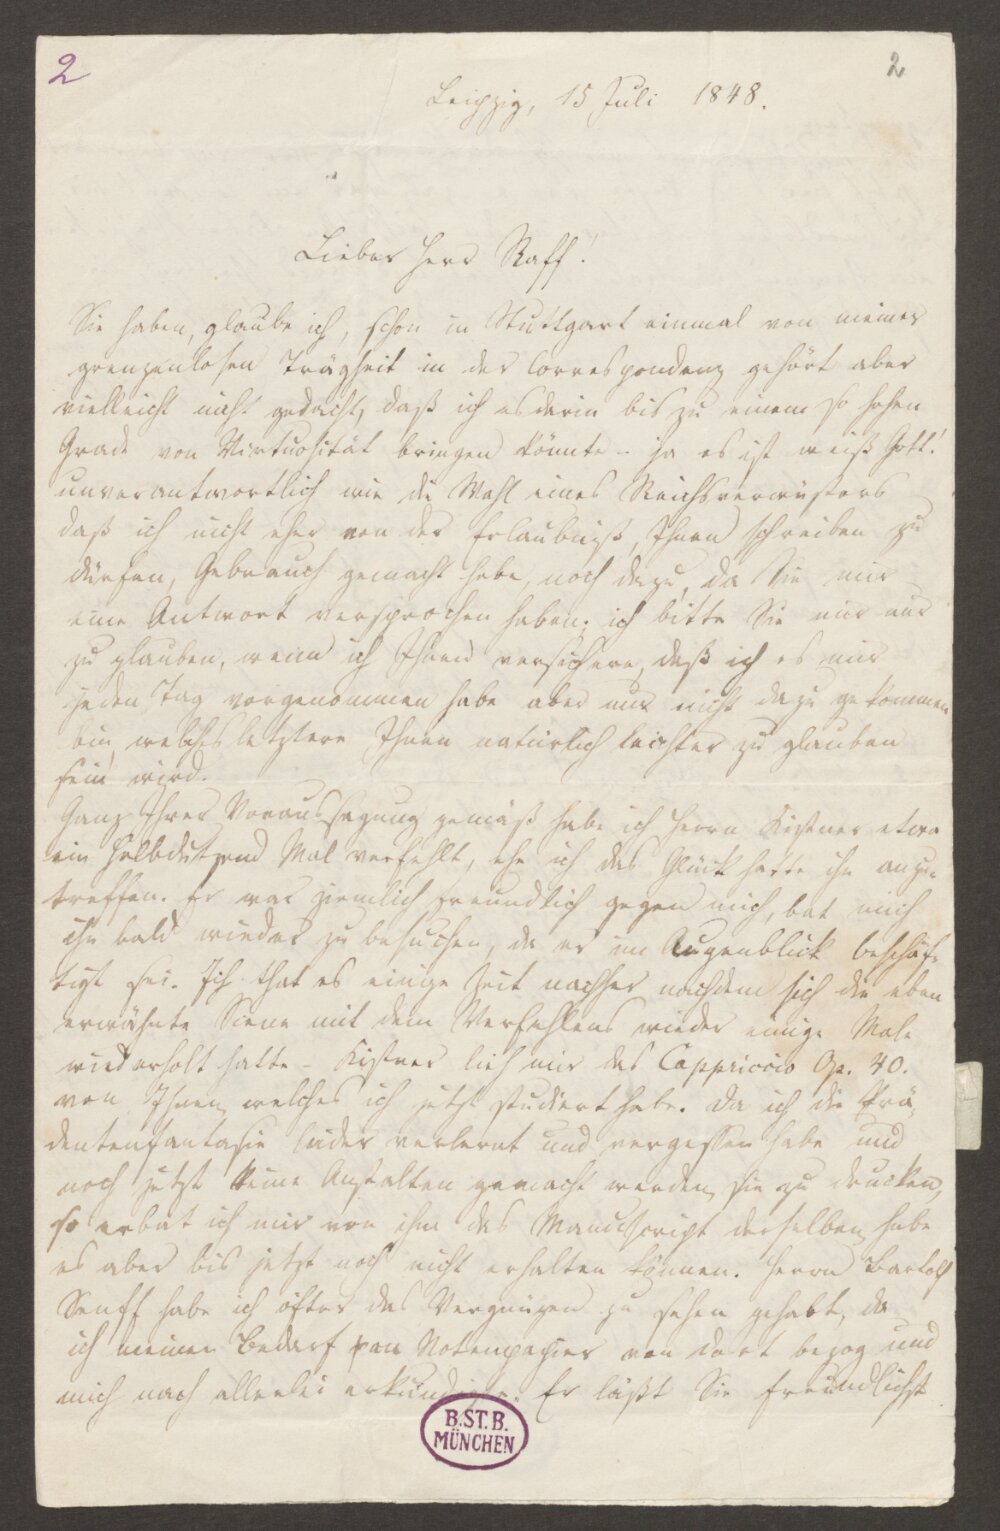 2
2
Leipzig, 15 Juli 1848.
Lieber Herr Raff!
Sie haben, glaube ich, schon in Stuttgart einmal von meiner
grenzenlosen Trägheit in der Correspondenz gehört aber
vielleicht nicht gedacht, daß ich es darin bis zu einem so hohen
Grade von Virtuosität bringen könnte – ja es ist weiß Gott!
unverantwortlich wie die Wahl eines Reichsverwesers
daß ich nicht eher von der Erlaubniß, Ihnen schreiben zu
dürfen, Gebrauch gemacht habe, noch dazu, da Sie mir
eine Antwort versprochen haben; ich bitte Sie mir nur
zu glauben, wenn ich Ihnen versichere, daß ich es mir
jeden Tag vorgenommen habe aber nur nicht dazu gekommen
bin, welches letztere Ihnen natürlich leichter zu glauben
sein wird.
Ganz Ihrer Voraussagung gemäß habe ich Herrn Kistner etwa
ein halbdutzend Mal verfehlt, ehe ich das Glück hatte ihn anzu-
treffen. Er war ziemlich freundlich gegen mich, bat mich
ihn bald wieder zu besuchen, da er im Augenblick beschäf-
tigt sei. Ich that es einige Zeit nachher nachdem sich die eben
erwähnte Scene mit dem Verfehlens wieder einige Male
wiederholt hatte – Kistner lieh mir das Cappriccio Op. 40.
von Ihnen, welches ich jetzt studiert habe. Da ich die Prä-
dentenfantasie leider verlernt und vergessen habe und
noch jetzt keine Anstalten gemacht werden, sie zu drucken,
so erbat ich mir von ihm das Manuscript derselben, habe
es aber bis jetzt noch nicht erhalten können. Herrn Bartolf
Senff habe ich öfter das Vergnügen zu sehen gehabt, da
ich meinen Bedarf von Notenpapier von dort bezog und
mich nach allerlei erkundigte. Er läßt Sie freundlichst
B.ST.B.
MÜNCHEN